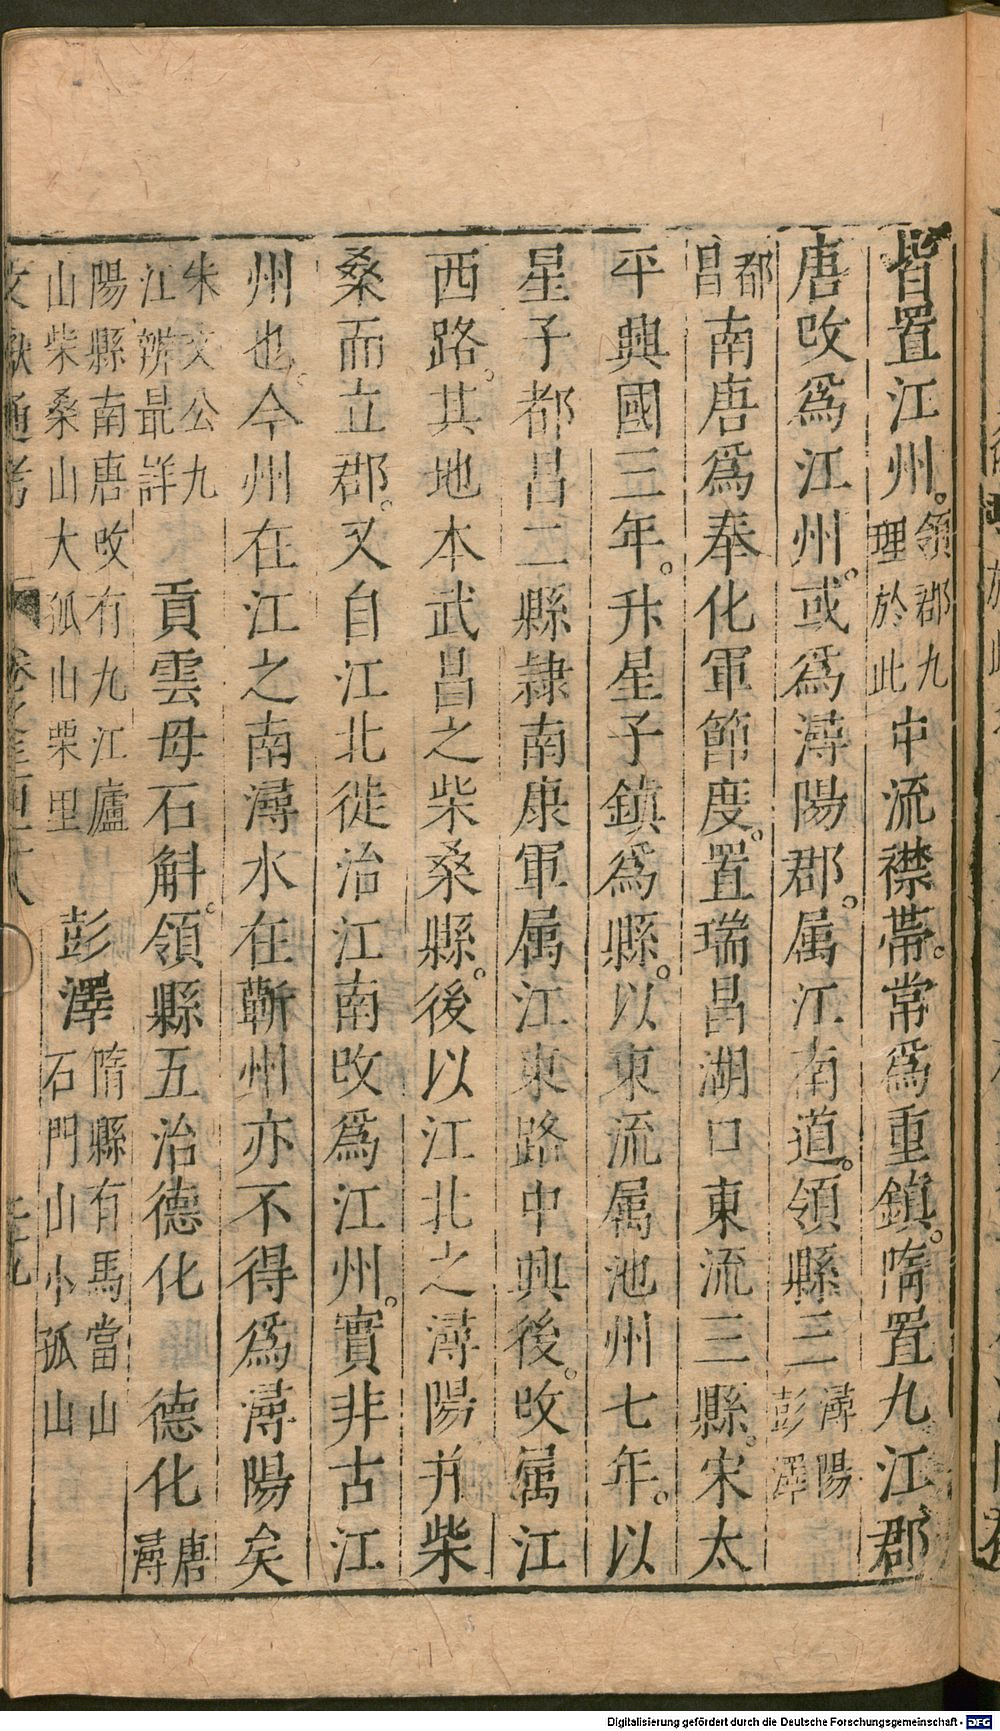 皆置江州。領郡九理於此中流襟帶。常為重鎮。隋置九江郡
唐改為江州。或為潯陽郡。属江南道。領縣三潯陽彭澤
都昌南唐為奉化軍節度。置瑞昌湖口東流三縣。宋太
平興國三年。升星子鎮為縣。以東流属池州七年。以
星子都昌二縣隷南康軍属江東路中興後。改属江
西路。其地本武昌之柴桑縣。後以江北之潯陽并柴
桑而立郡。又自江北徙治江南改為江州。實非古江
州也。今州在江之南潯水在蘄州亦不得為潯陽矣
朱文公九江辨最詳 貢雲母石斛。領縣五治德化 德化唐潯
陽縣南唐改有九江廬山柴桑山大孤山栗里 彭澤隋縣有馬當山石門山小孤山
文獻通考
Digitalisierung gefördert durch die Deutsche Forschungsgemeinschaft - DFG